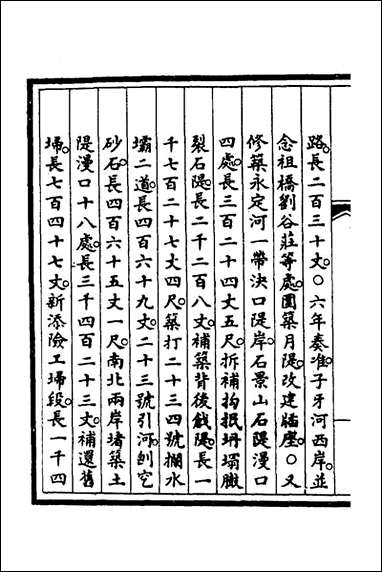 路。長二百三十丈。○六年奏准。子牙河西岸。並
念祖橋劉谷莊等處。圈築月隄。改建牐壩。○又
修築永定河一帶決口隄岸。石景山石隄漫口
四處。長三百二十四丈五尺。拆補拘抿坍塌臌
裂石隄。長二千二百八丈。補築背後戧隄。長一
千七百二十七丈四尺。築打二十三四號攔水
壩二道。長四百六十九丈。二十三號引河。刨空
砂石。長四百六十五丈一尺。南北兩岸堵築土
隄漫口十八處。長三千四百二十三丈。補還舊
埽。長七百四十七丈。新添險工埽段。長一千四